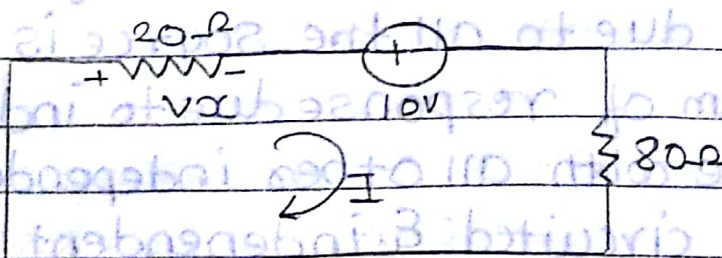 20Ω
+ -
+
Vx
10V
80Ω
I